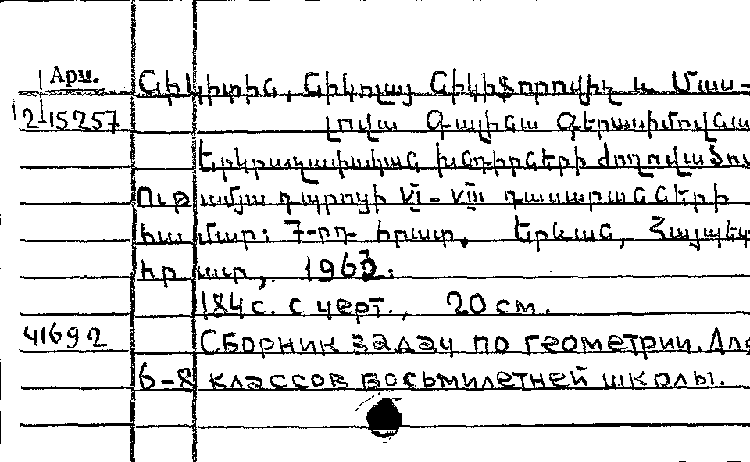 Арм.
Նիկիտին, Նիկոլայ Նիկիֆորովիչ և Մաս-
12-15257
լովա Գալինա Գերասիմովնա
Երկրաչափական խնդիրների ժողովածու
Ութամյա դպրոցի VI-VIII դասարանների
համար: 7-րդ հրատ. Երևան, Հայպետ
հրատ, 1963.
184 с. с черт., 20 см.
41692
Сборник задач по геометрии. Для
6-8 классов восьмилетней школы.